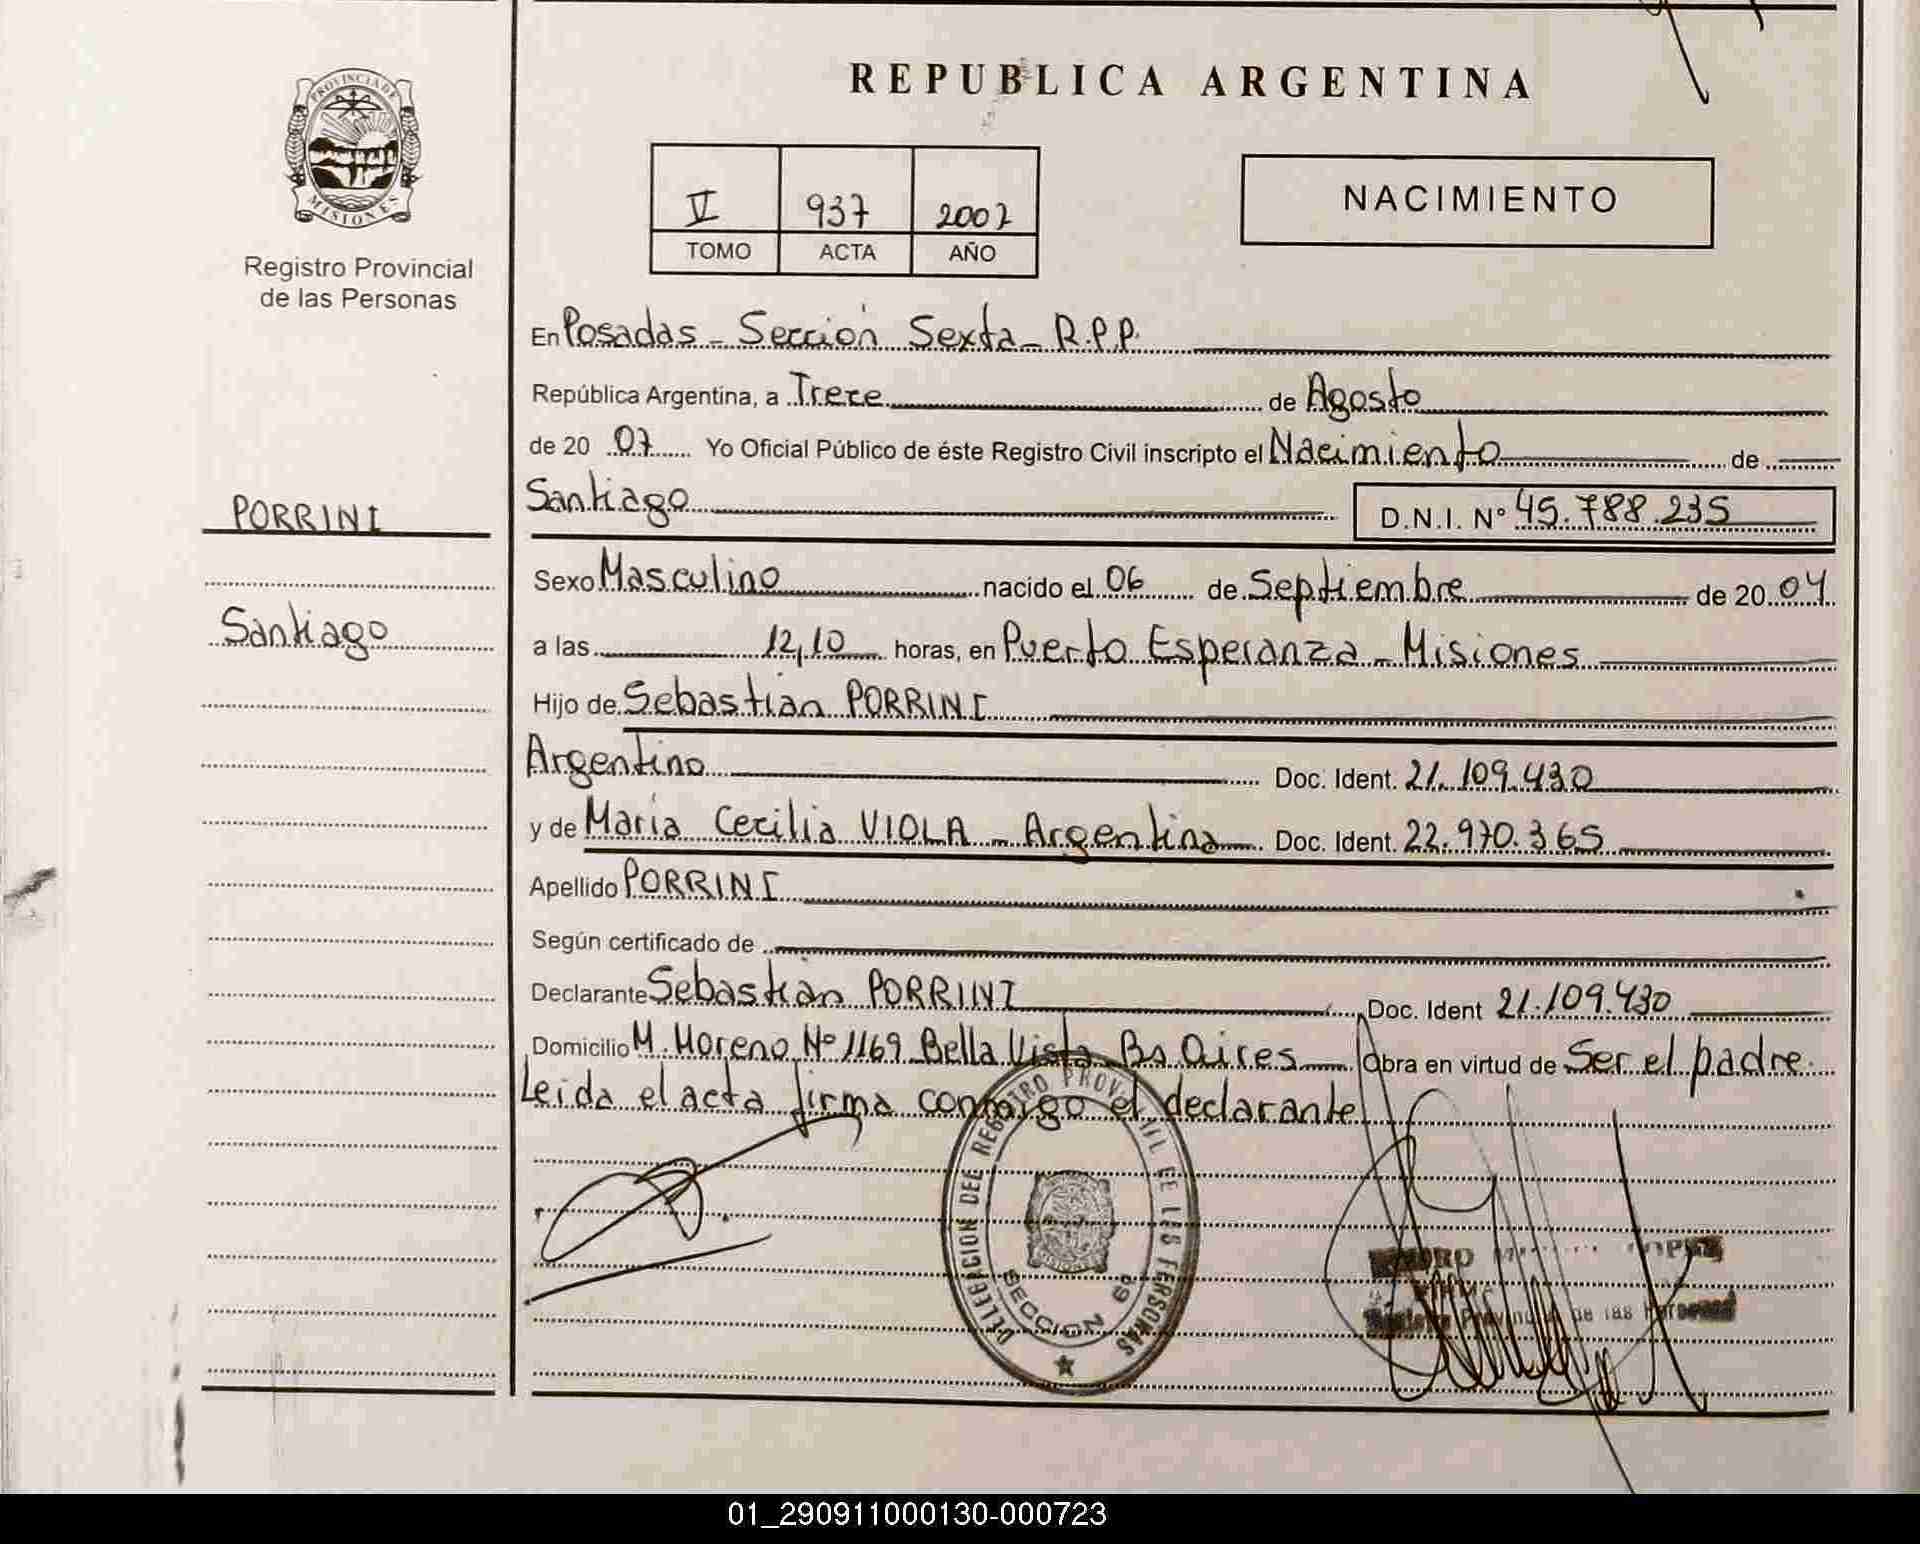 REPUBLICA ARGENTINA
PROVINCIA DE MISIONES
Registro Provincial
de las Personas
V 937 2007
TOMO ACTA AÑO
NACIMIENTO
En Posadas - Sección Sexta - R.P.P.
República Argentina, a Trece de Agosto
de 20 07 Yo Oficial Público de éste Registro Civil inscripto el Nacimiento de
PORRINI
Santiago D.N.I. Nº 45.788.235
Sexo Masculino nacido el 06 de Septiembre de 20 04
Santiago
a las 12,10 horas, en Puerto Esperanza - Misiones
Hijo de Sebastián PORRINI
Argentino Doc. Ident. 21.109.430
y de María Cecilia VIOLA - Argentina Doc. Ident. 22.970.365
Apellido PORRINI
Según certificado de
Declarante Sebastián PORRINI Doc. Ident 21.109.430
Domicilio M. Moreno Nº 1169 Bella Vista Bs Aires Obra en virtud de Ser el padre.
Leida el acta firma conmigo el declarante
DELEGACION DEL REGISTRO PROVINCIAL DE LAS PERSONAS
MISIONES
SECCION 6ª
de las Personas
01_290911000130-000723